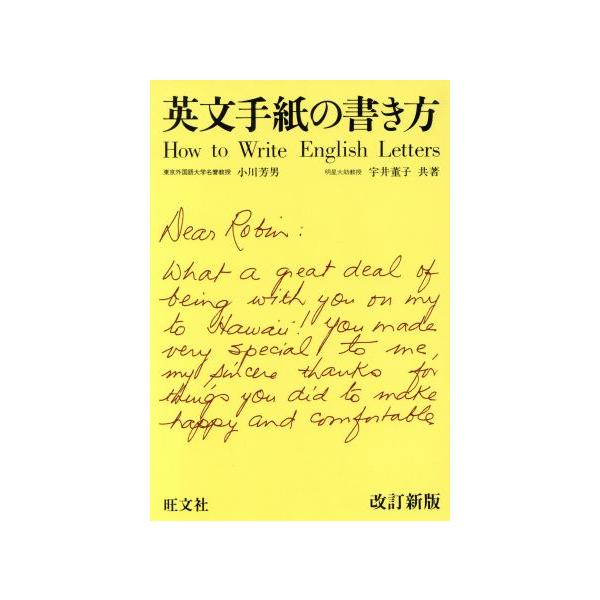 英文手紙の書き方
How to Write English Letters
東京外国語大学名誉教授 小川芳男 明星大助教授 宇井菫子 共著
Dear Robin:
What a great deal of
being with you on my
to Hawaii! You made
very special to me,
my sincere thanks for
things you did to make
happy and comfortable
旺文社 改訂新版